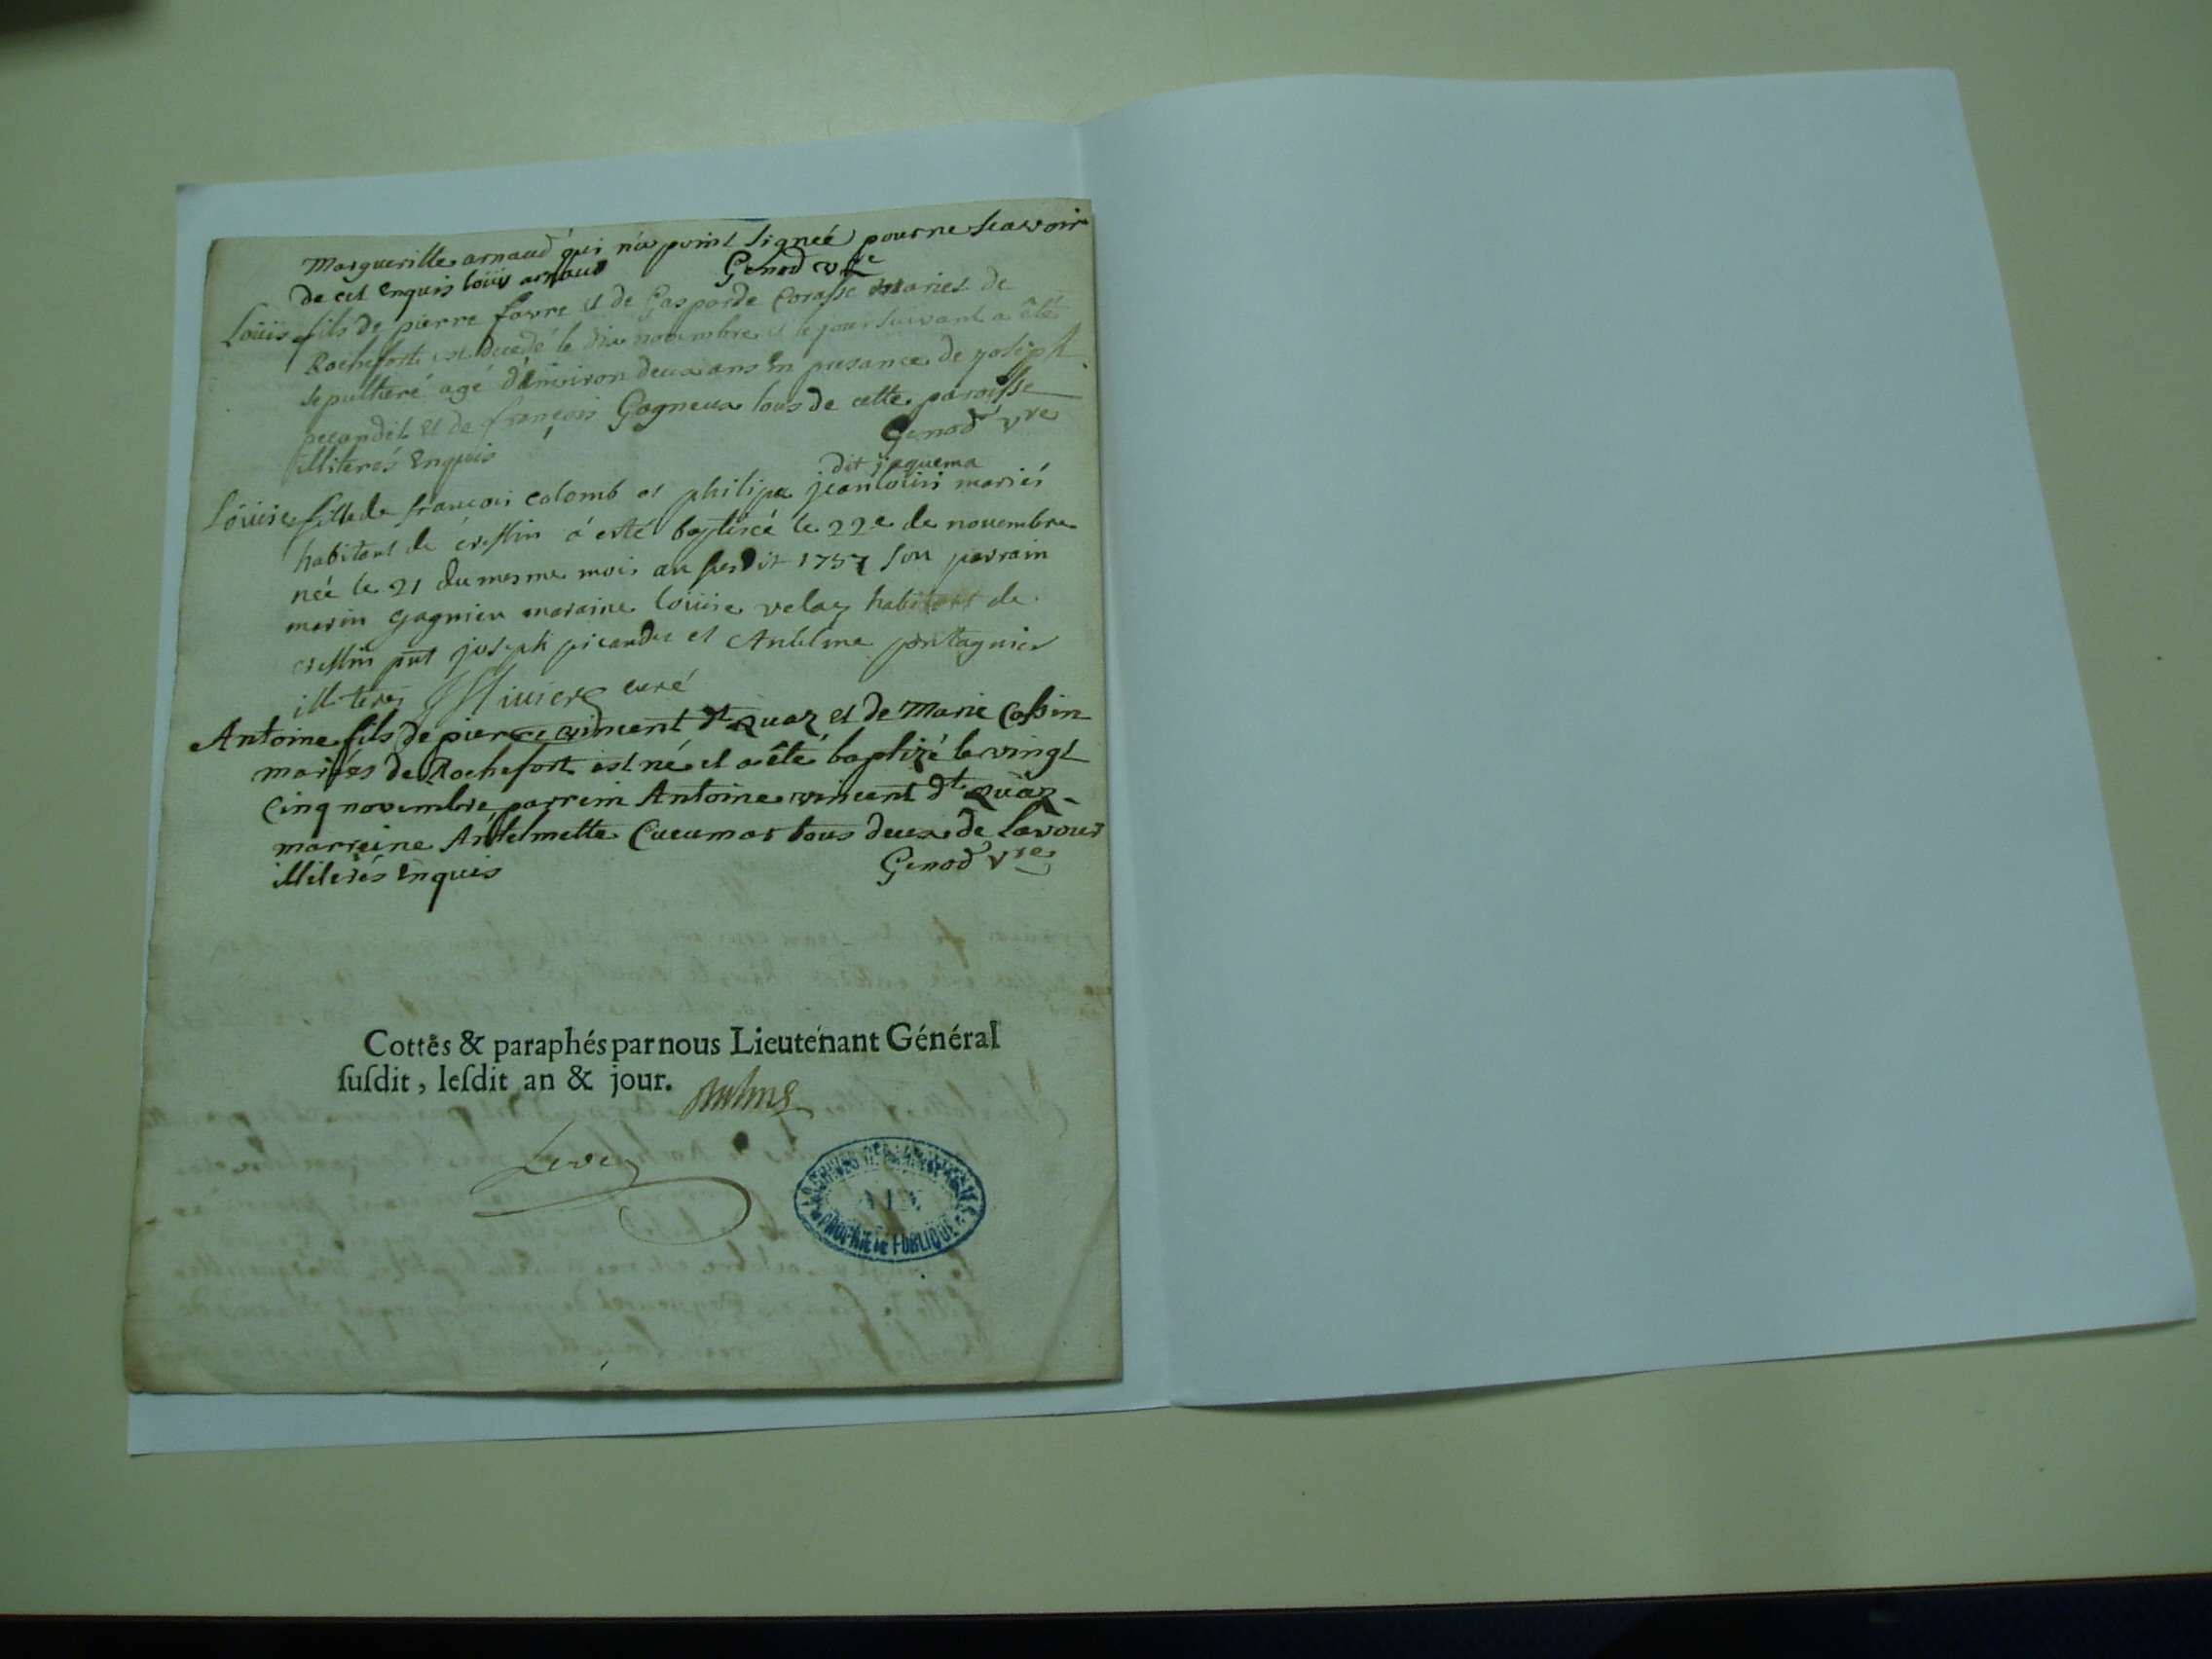 Margueritte arnaud qui n'a point signeé pour ne scavoir
de ce enquis loüis arnaud Genod vre
Loüis fils de pierre favre et de Gasparde Corasse mariés de
Rochefort est decedé le dix novembre et le jour suivant a êté
sepulturé agé d'environ deux ans En presance de joseph
pecandet et de françois Gagneux tous de cette paroisse
illiterés Enquis Genod vre
dit jaquema
Loüise fille de francois colomb et philipa jeanlouis mariés
habitant de cressin á esté baptisée le 22e de novembre
née le 21 du mesme mois an susdit 1757 son parrain
marin gagnieu maraine loüise velay habitant de
cressin pnt joseph picandet et Antelme pontagnier
illiterés curé
Antoine fils de pierre vincent dt quaz et de Marie Cassin
mariés de Rochefort est né et a êté baptizé le vingt
Cinq novembre parrein Antoine vincent dt Quaz
marreine Antelmette Cucumat tous deux de Lavour
illiterés Enquis Genod vre
Cottés & paraphés par nous Lieutenant Général
susdit, lesdit an & jour.
ARCHIVES DÉPARTEMENTALES
AIN
PROPRIÉTÉ PUBLIQUE